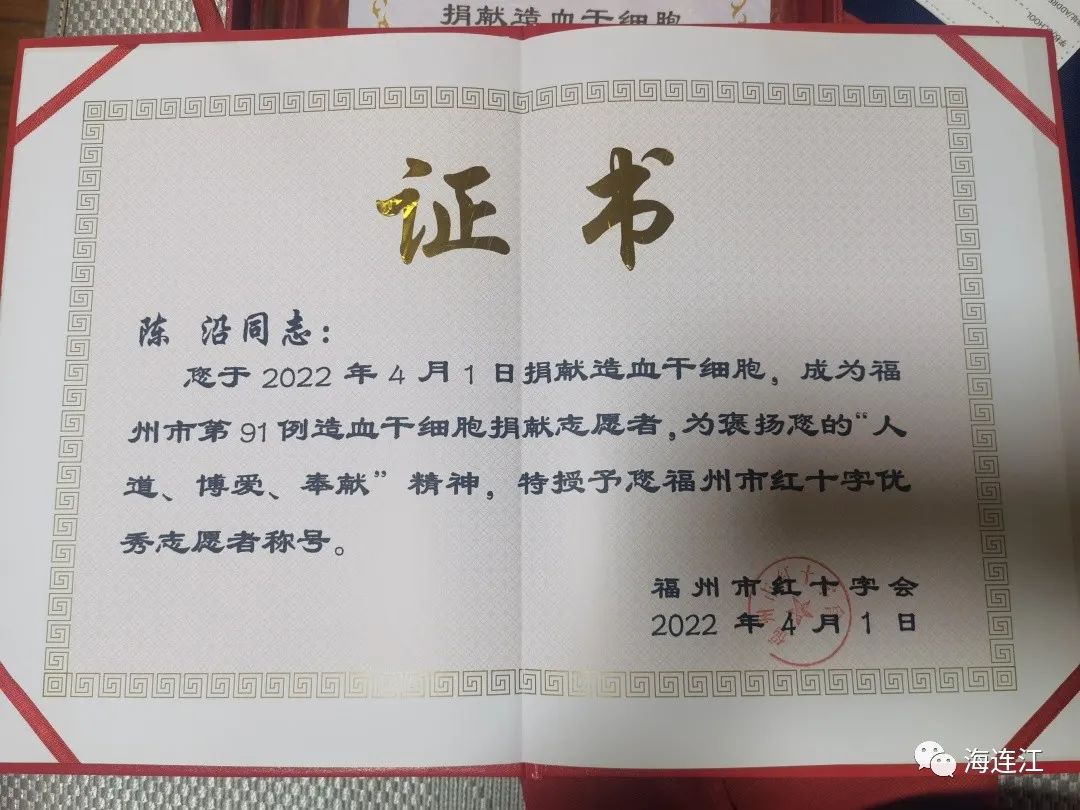 捐献造血干细胞
证书
陈 沿同志：
您于 2022 年 4 月 1 日捐献造血干细胞，成为福
州市第 91 例造血干细胞捐献志愿者，为褒扬您的“人
道、博爱、奉献”精神，特授予您福州市红十字优
秀志愿者称号。
福州市红十字会
2022 年 4 月 1 日
海连江